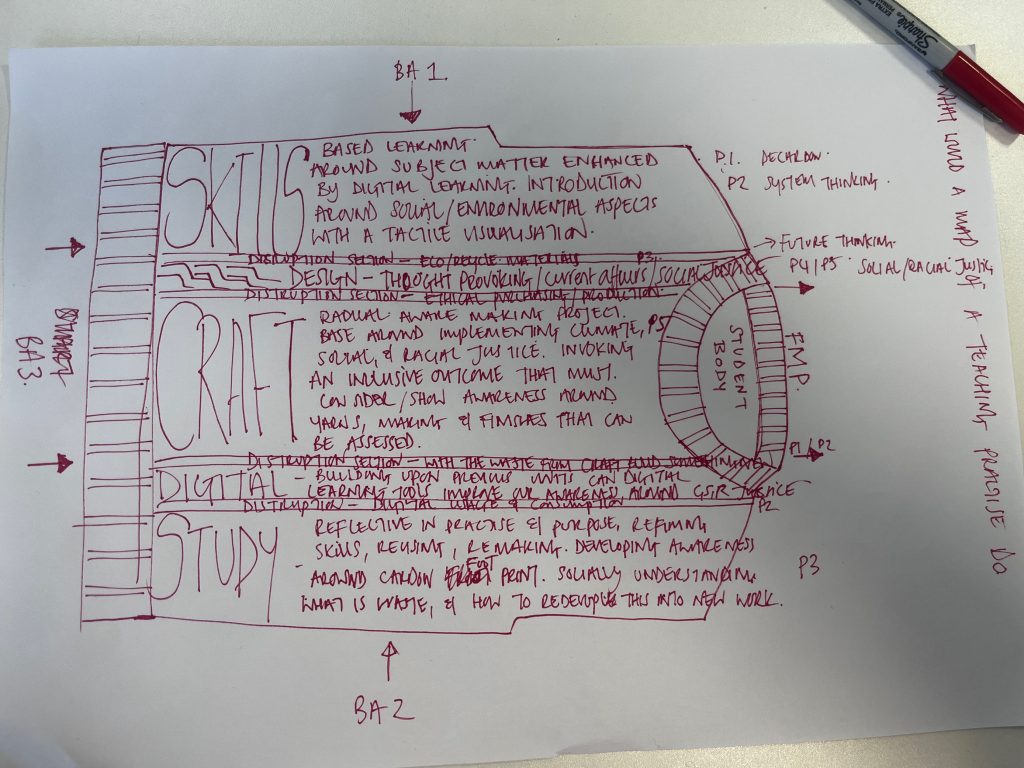 BA 1.
SKILLS
BASED LEARNING.
AROUND SUBJECT MATTER ENHANCED
BY DIGITAL LEARNING. INTRODUCTION
AROUND SOCIAL/ENVIRONMENTAL ASPECTS
WITH A TACTILE VISUALISATION.
DISTRUPTION SECTION - ECO/RECYCLE MATERIALS P3.
DESIGN - THOUGHT PROVOKING/CURRENT AFFAIRS/SOCIAL JUSTICE
DISTRUPTION SECTION - ETHICAL PURCHASING/PRODUCTION.
CRAFT
RADICAL AWARE MAKING PROJECT.
BASE AROUND IMPLEMENTING CLIMATE, P5
SOCIAL, & RACIAL JUSTICE. INVOKING
AN INCLUSIVE OUTCOME THAT MUST.
CONSIDER/SHOW AWARENESS AROUND
YARNS, MAKING & FINISHES THAT CAN
BE ASSESSED.
DISTRUPTION SECTION - WITH THE WASTE FROM CRAFT BUILD SOMETHING
DIGITAL - BUILDING UPON PREVIOUS UNITS CAN DIGITAL
LEARNING TOOLS IMPROVE OUR AWARENESS AROUND JUSTICE
DISTRUPTION - DIGITAL USAGE & CONSUMPTION P2
STUDY
REFLECTIVE IN PRACTISE & PURPOSE, REFINING
SKILLS, REUSING, REMAKING. DEVELOPING AWARENESS
AROUND CARBON FOOT PRINT. SOCIALLY UNDERSTANDING
WHAT IS WASTE, & HOW TO REDEVELOPE THIS INTO NEW WORK.
P3
BA 2
BA3.
STUDENT
BODY
FMP.
P1/P2
P.1. DECARBON.
P2 SYSTEM THINKING.
FUTURE THINKING.
P4/P5. SOCIAL/RACIAL JUSTICE
WHAT WOULD A MAP OF A TEACHING PRACTISE DO
Sharpie